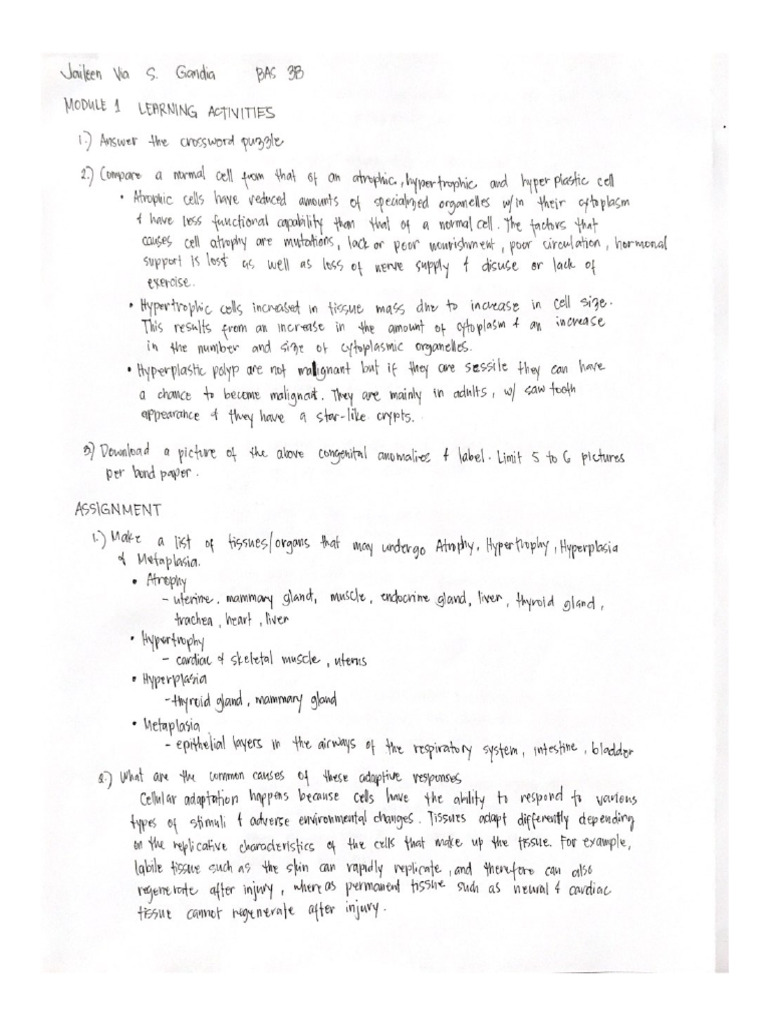 Jaileen Via S. Gandia BAS 3B
MODULE 1 LEARNING ACTIVITIES
1.) Answer the crossword puzzle
2.) Compare a normal cell from that of an atrophic, hypertrophic and hyperplastic cell
• Atrophic cells have reduced amounts of specialized organelles w/in their cytoplasm
& have less functional capability than that of a normal cell. The factors that
causes cell atrophy are mutations, lack or poor nourishment, poor circulation, hormonal
support is lost as well as loss of nerve supply & disuse or lack of
exercise.
• Hypertrophic cells increased in tissue mass due to increase in cell size.
This results from an increase in the amount of cytoplasm & an increase
in the number and size of cytoplasmic organelles.
• Hyperplastic polyp are not malignant but if they are sessile they can have
a chance to become malignant. They are mainly in adults, w/ saw tooth
appearance & they have a star-like crypts.
3) Download a picture of the above congenital anomalies & label. Limit 5 to 6 pictures
per bond paper.
ASSIGNMENT
1.) Make a list of tissues/organs that may undergo Atrophy, Hypertrophy, Hyperplasia
& Metaplasia.
• Atrophy
- uterine, mammary gland, muscle, endocrine gland, liver, thyroid gland,
trachea, heart, liver
• Hypertrophy
- cardiac & skeletal muscle, uterus
• Hyperplasia
- thyroid gland, mammary gland
• Metaplasia
- epithelial layers in the airways of the respiratory system, intestine, bladder
2.) What are the common causes of these adaptive responses
Cellular adaptation happens because cells have the ability to respond to various
types of stimuli & adverse environmental changes. Tissues adapt differently depending
on the replicative characteristics of the cells that make up the tissue. For example,
labile tissue such as the skin can rapidly replicate, and therefore can also
regenerate after injury, whereas permanent tissue such as neural & cardiac
tissue cannot regenerate after injury.